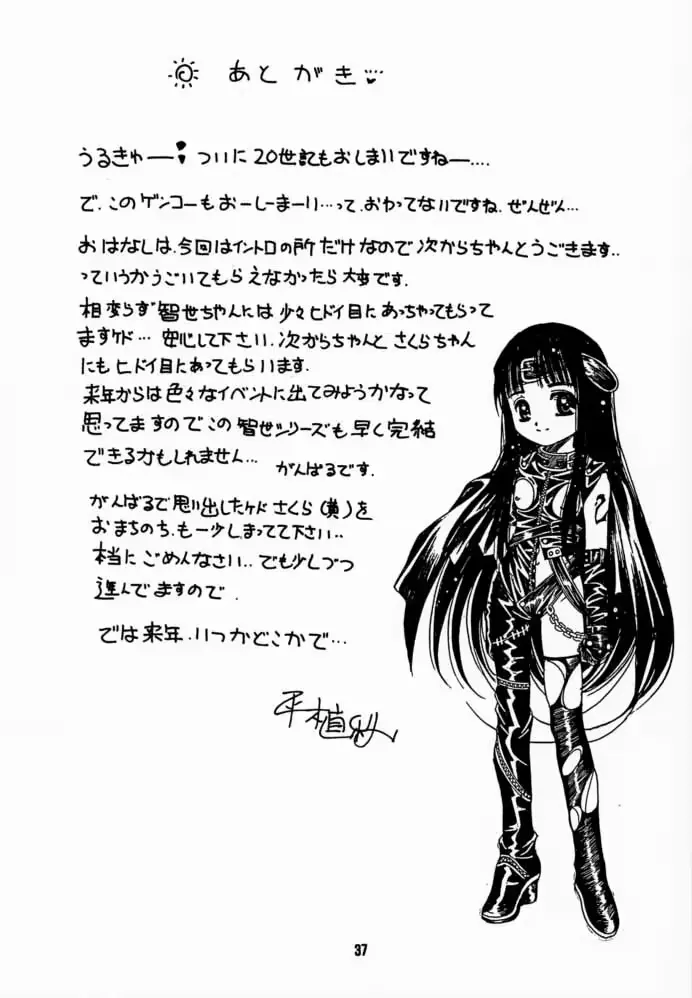 あとがき
うるきゅー!ついに20世記もおしまいですねー....
で.このゲンコーもおーしーまーい...って.おわってないですね.ぜんぜん...
おはなしは.今回はイントロの所だけなので次からちゃんとうごきます..
っていうかうごいてもらえなかったら大事です.
相変らず智世ちゃんには少々ヒドイ目にあっちゃってもらって
ますケド...安心して下さい.次からちゃんとさくらちゃん
にもヒドイ目にあってもらいます.
来年からは色々なイベントに出てみようかなって
思ってますのでこの智世シリーズも早く完結
できるかもしれません...がんばるです.
がんばるで思い出したケドさくら(黄)を
おまちのち.も一少しまってて下さい..
本当にごめんなさい..でも少しづつ
進んでますので.
では来年.いつかどこかで...
37